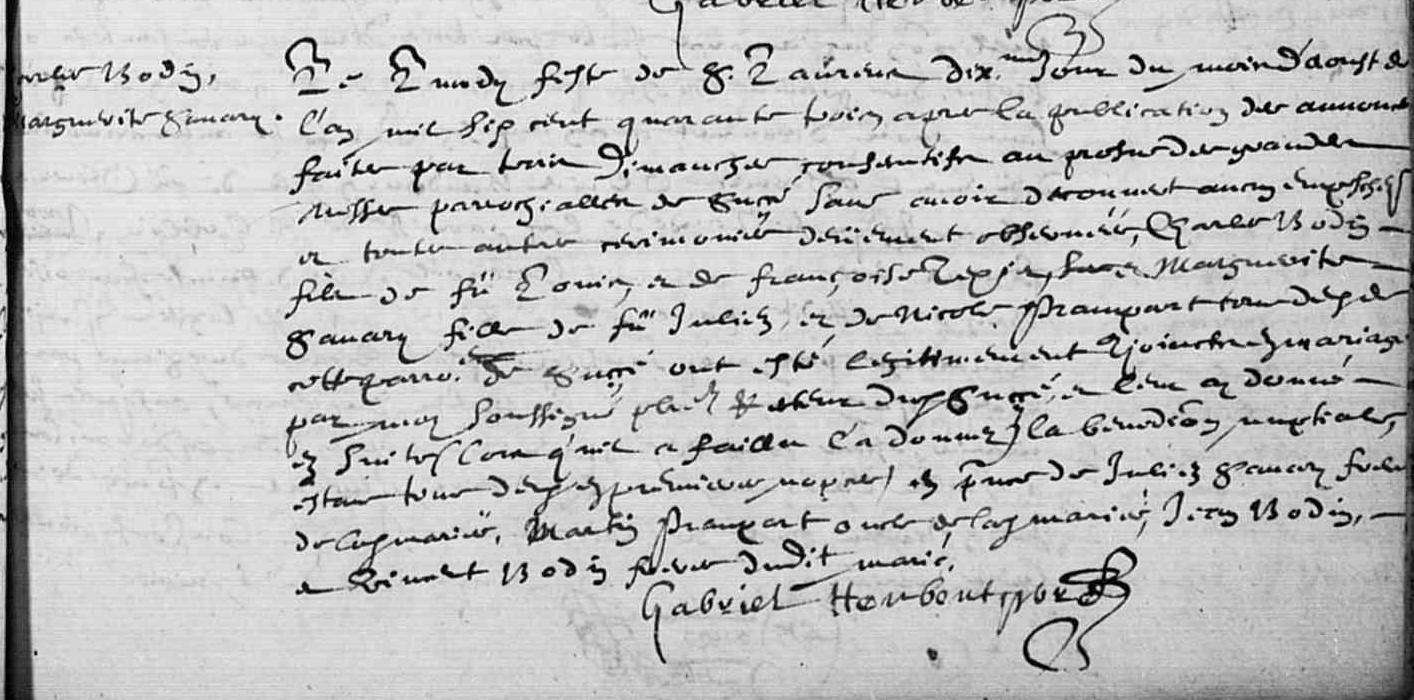 Gabriel
Charles Bodin,
Marguerite Ganary.
Le Lundy feste de S. Laurens dix.me Jour du mois d'aoust de
l'an mil six cent quarante trois apres la publication des annonces
faites par trois Dimanches consecutifs au prosne des grandes
Messes parrochialles de Succé sans avoir decouvert aucun empeschems
et toutes autres cerimonies deüement observées, Charles Bodin
fils de fü Louis, et de françoise Texier, avec Marguerite
Ganary fille de fü Julien, et de Nicole Prampart tous deux de
cette parro. de Succé ont esté legitimement conjoincts en mariage
par moy soussigné pbre Recteur dud Succé, et leur ay donné
en suite (lors qu'il a fallu la donner) la benedion nuptiale,
estans tous deux en premieres nopces, en pnce de Julien Ganary frere
de lad mariée, Martin Prampart oncle de lad mariée, Jean Bodin,
et Bodin freres dudit marié.
Gabriel pbre